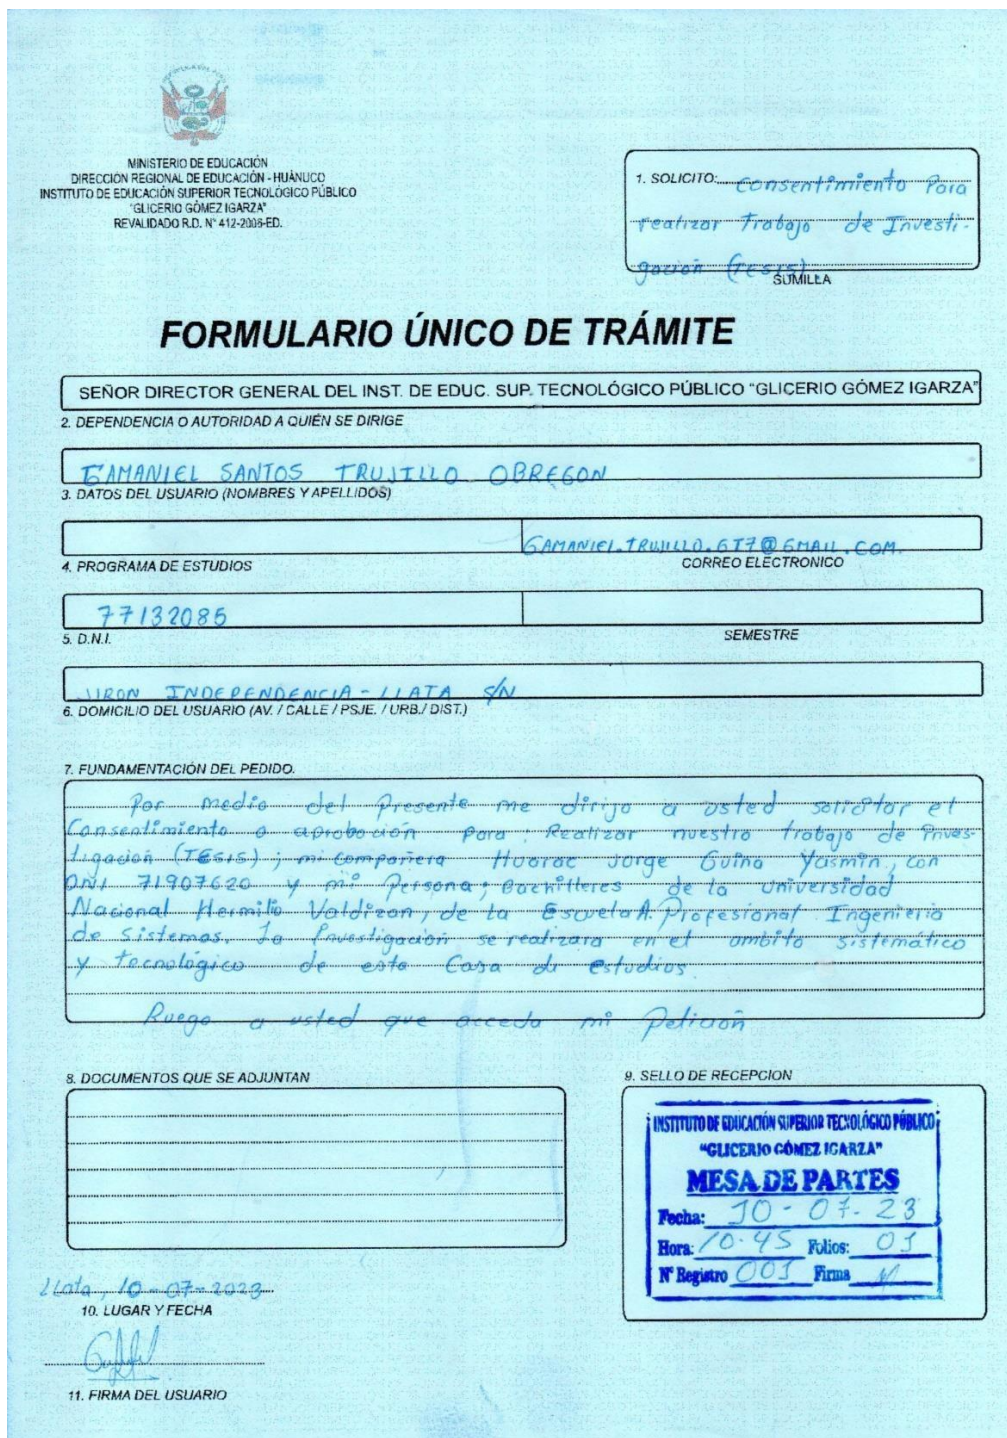 MINISTERIO DE EDUCACIÓN
DIRECCIÓN REGIONAL DE EDUCACIÓN - HUÀNUCO
INSTITUTO DE EDUCACIÓN SUPERIOR TECNOLÓGICO PÚBLICO
"GLICERIO GÓMEZ IGARZA"
REVALIDADO R.D. N° 412-2006-ED.
1. SOLICITO: Consentimiento Para
realizar Trabajo de Investi-
gación (TESIS)
SUMILLA
FORMULARIO ÚNICO DE TRÁMITE
SEÑOR DIRECTOR GENERAL DEL INST. DE EDUC. SUP. TECNOLÓGICO PÚBLICO "GLICERIO GÓMEZ IGARZA"
2. DEPENDENCIA O AUTORIDAD A QUIÉN SE DIRIGE
GAMANIEL SANTOS TRUJILLO OBREGON
3. DATOS DEL USUARIO (NOMBRES Y APELLIDOS)
GAMANIEL.TRUJILLO.GT7@GMAIL.COM.
4. PROGRAMA DE ESTUDIOS
CORREO ELECTRONICO
77132085
5. D.N.I.
SEMESTRE
JIRON INDEPENDENCIA - LLATA S/N
6. DOMICILIO DEL USUARIO (AV. / CALLE / PSJE. / URB./ DIST.)
7. FUNDAMENTACIÓN DEL PEDIDO.
Por medio del presente me dirijo a usted solicitar el
Consentimiento o aprobación para: Realizar nuestro trabajo de Inves-
tigación (TESIS); mi compañera Huarac Jorge Guina Yasmin, con
DNI 71907620 y mi Persona; Bachilleres de la universidad
Nacional Hermilio Valdizan, de la Escuela A. Profesional Ingenieria
de Sistemas. La Investigación se realizara en el ambito sistemático
y tecnológico de esta Casa de estudios.
Ruego a usted que acceda mi Petición
8. DOCUMENTOS QUE SE ADJUNTAN
9. SELLO DE RECEPCION
INSTITUTO DE EDUCACIÓN SUPERIOR TECNOLÓGICO PÚBLICO
"GLICERIO GÓMEZ IGARZA"
MESA DE PARTES
Fecha: 10-07-23
Hora: 10.45 Folios: 01
N° Registro 001 Firma
Llata, 10-07-2023
10. LUGAR Y FECHA
11. FIRMA DEL USUARIO